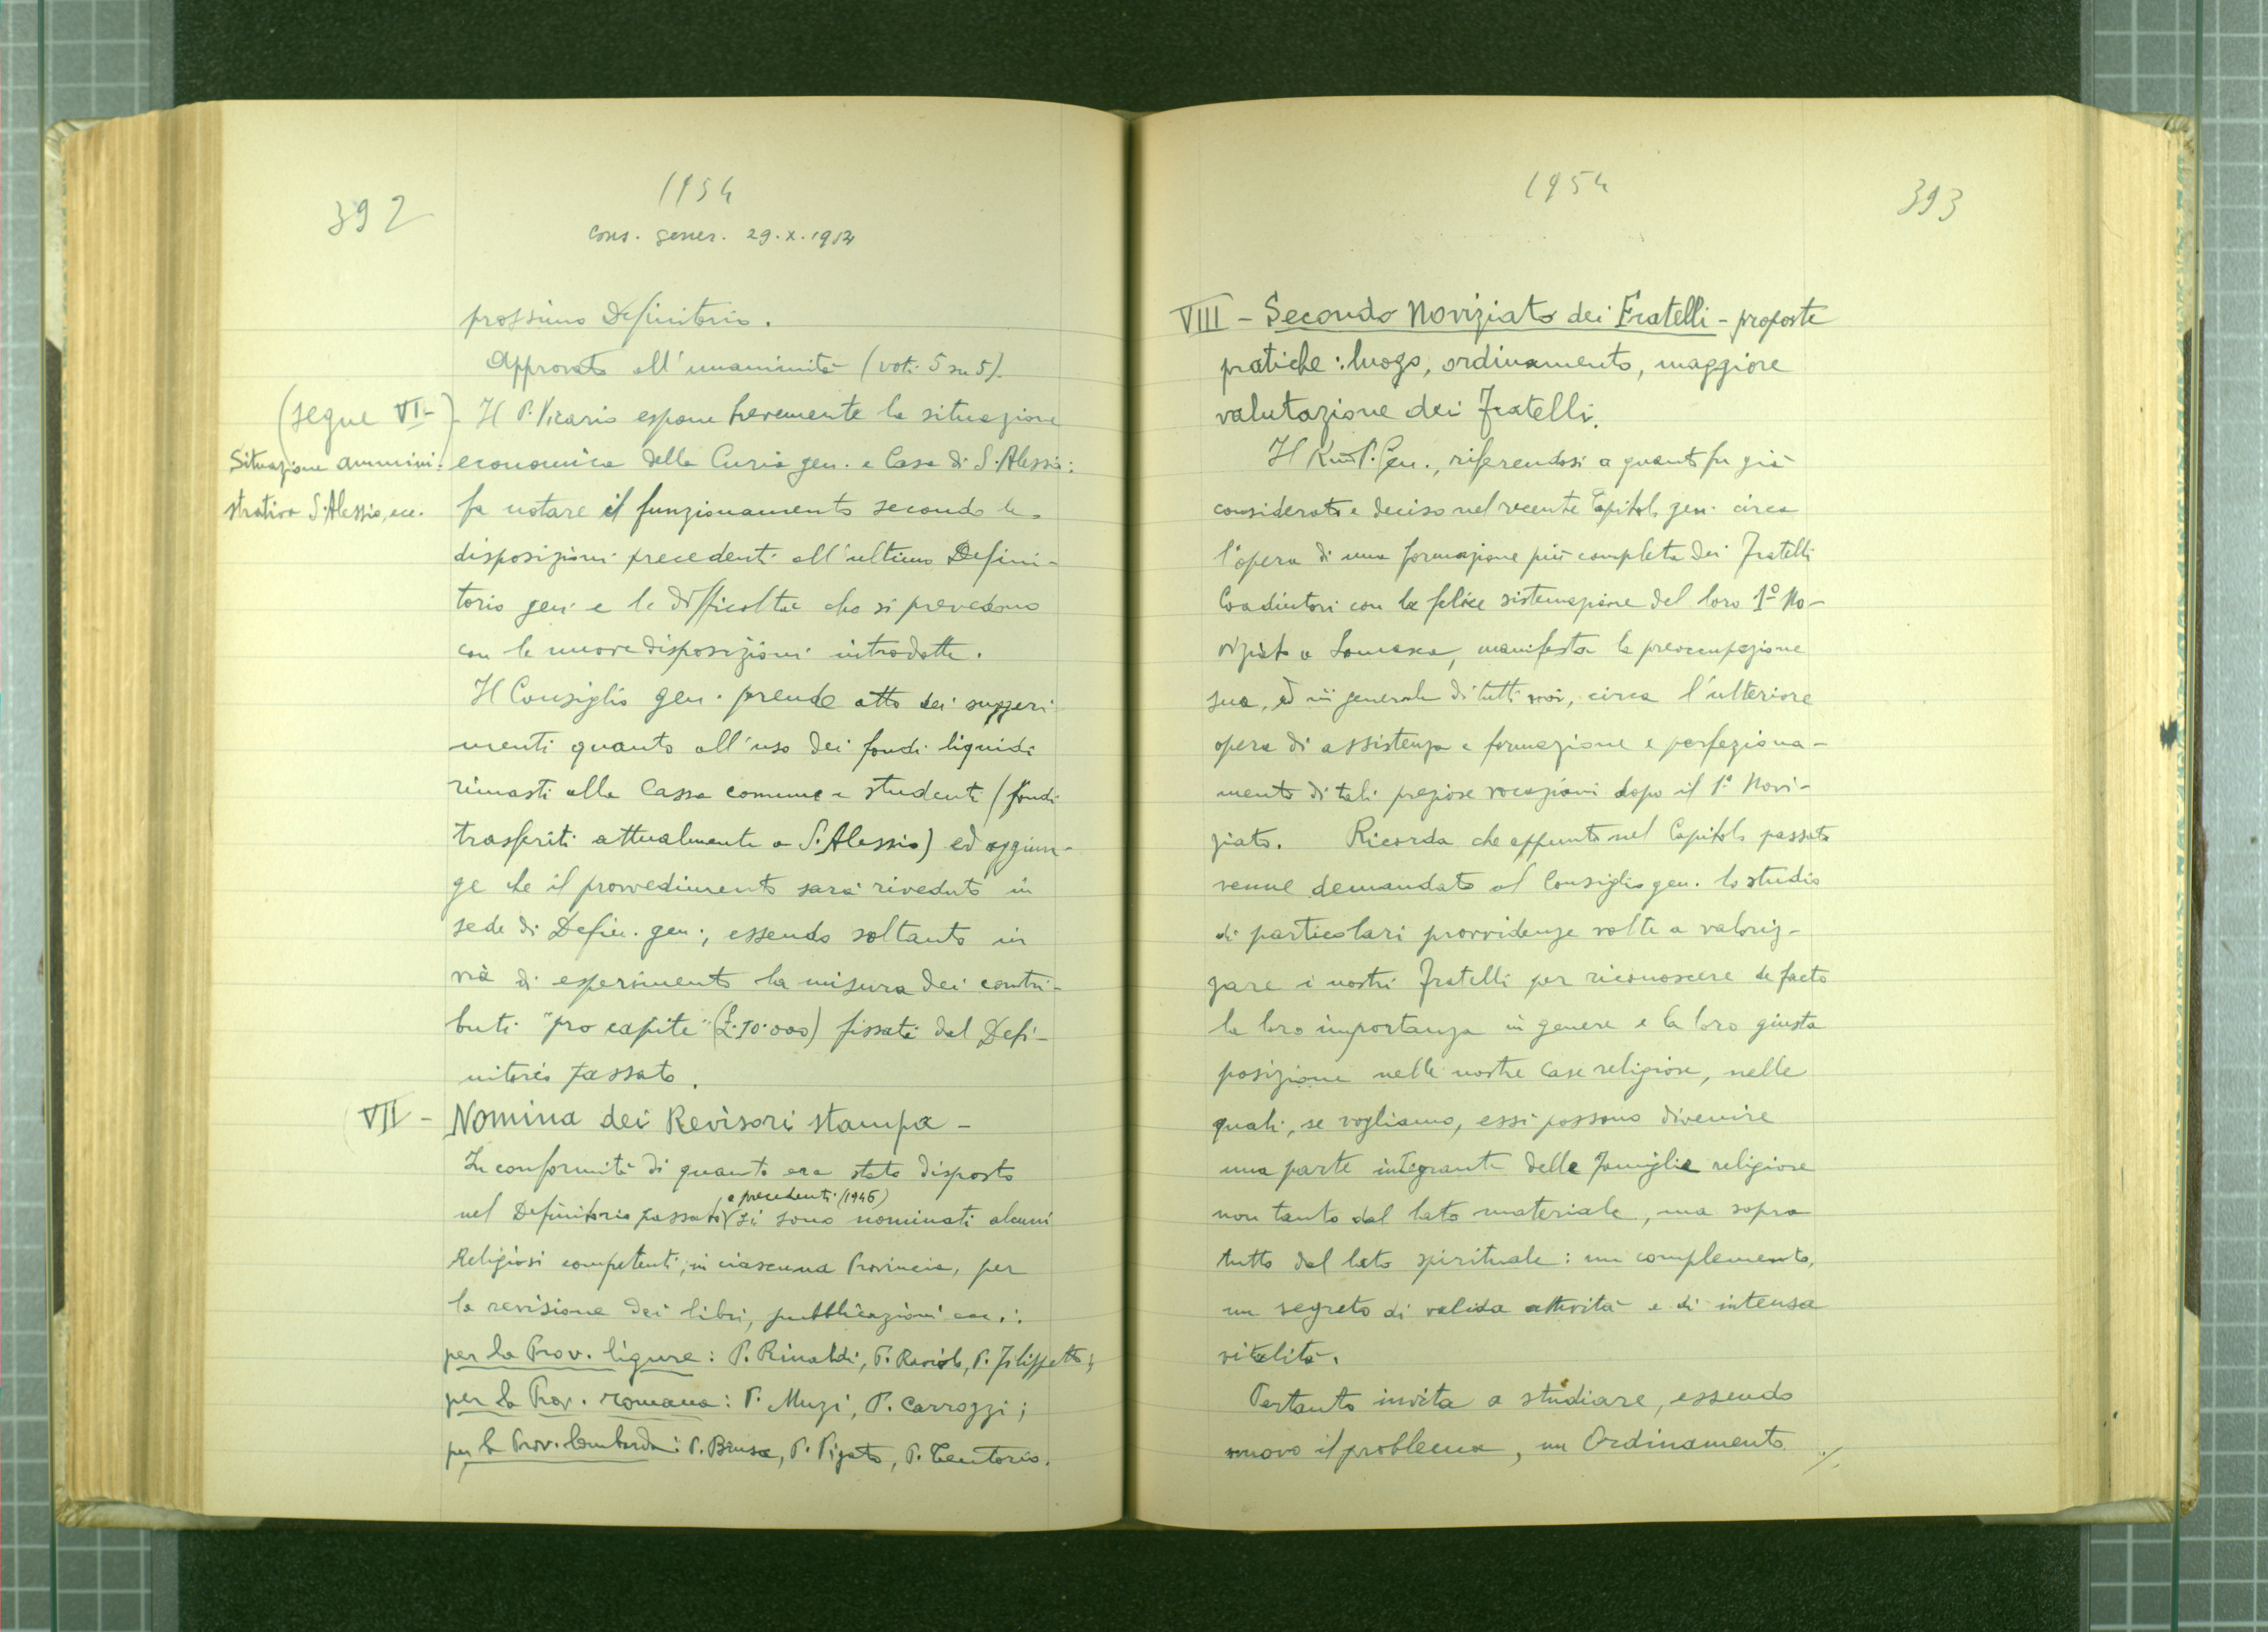 392
1954
Cons. gener. 29.X.1954
prossimo Definitorio.
Approvato all'unanimità (voti 5 su 5).
(segue VI-)
Situazione ammini-
strativa S. Alessio, ecc.
- Il P. Vicario espone brevemente la situazione
economica della Curia gen. e Casa di S. Alessio:
fa notare il funzionamento secondo le
disposizioni precedenti all'ultimo Defini-
torio gen. e le difficoltà che si prevedono
con le nuove disposizioni introdotte.
Il Consiglio gen. prende atto dei suggeri
menti quanto all'uso dei fondi liquidi
rimasti alla Cassa comune e studenti (fondi
trasferiti attualmente a S. Alessio) ed aggiun-
ge che il provvedimento sarà riveduto in
sede di Defin. gen., essendo soltanto in
via di esperimento la misura dei contri-
buti "pro capite" (£. 10.000) fissati dal Defi-
nitorio passato.
VII - Nomina dei Revisori stampa -
In conformità di quanto era stato disposto
nel Definitorio passato e precedenti (1946) si sono nominati alcuni
Religiosi competenti, in ciascuna Provincia, per
la revisione dei libri, pubblicazioni ecc.:
per la Prov. ligure: P. Rinaldi, P. Raviolo, P. Filippetto;
per la Prov. romana: P. Muzi, P. Carrozzi;
per la Prov. lombarda: P. Brusa, P. Pigato, P. Tentorio.
1954
393
VIII - Secondo Noviziato dei Fratelli - proposte
pratiche: luogo, ordinamento, maggiore
valutazione dei Fratelli.
Il Rev.mo P. Gen., riferendosi a quanto fu già
considerato e deciso nel recente Capitolo gen. circa
l'opera di una formazione più completa dei Fratelli
Coadiutori con la felice sistemazione del loro 1º No-
viziato a Somasca, manifesta la preoccupazione
sua, ed in generale di tutti noi, circa l'ulteriore
opera di assistenza e formazione e perfeziona-
mento di tali preziose vocazioni dopo il 1º Novi-
ziato. Ricorda che appunto nel Capitolo passato
venne demandato al Consiglio gen. lo studio
di particolari provvidenze volte a valoriz-
zare i nostri Fratelli per riconoscere de facto
la loro importanza in genere e la loro giusta
posizione nelle nostre Case religiose, nelle
quali, se vogliamo, essi possono divenire
una parte integrante delle famiglie religiose
non tanto dal lato materiale, ma sopra
tutto dal lato spirituale: un complemento,
un segreto di valida attività e di intensa
vitalità.
Pertanto invita a studiare, essendo
nuovo il problema, un Ordinamento ./.